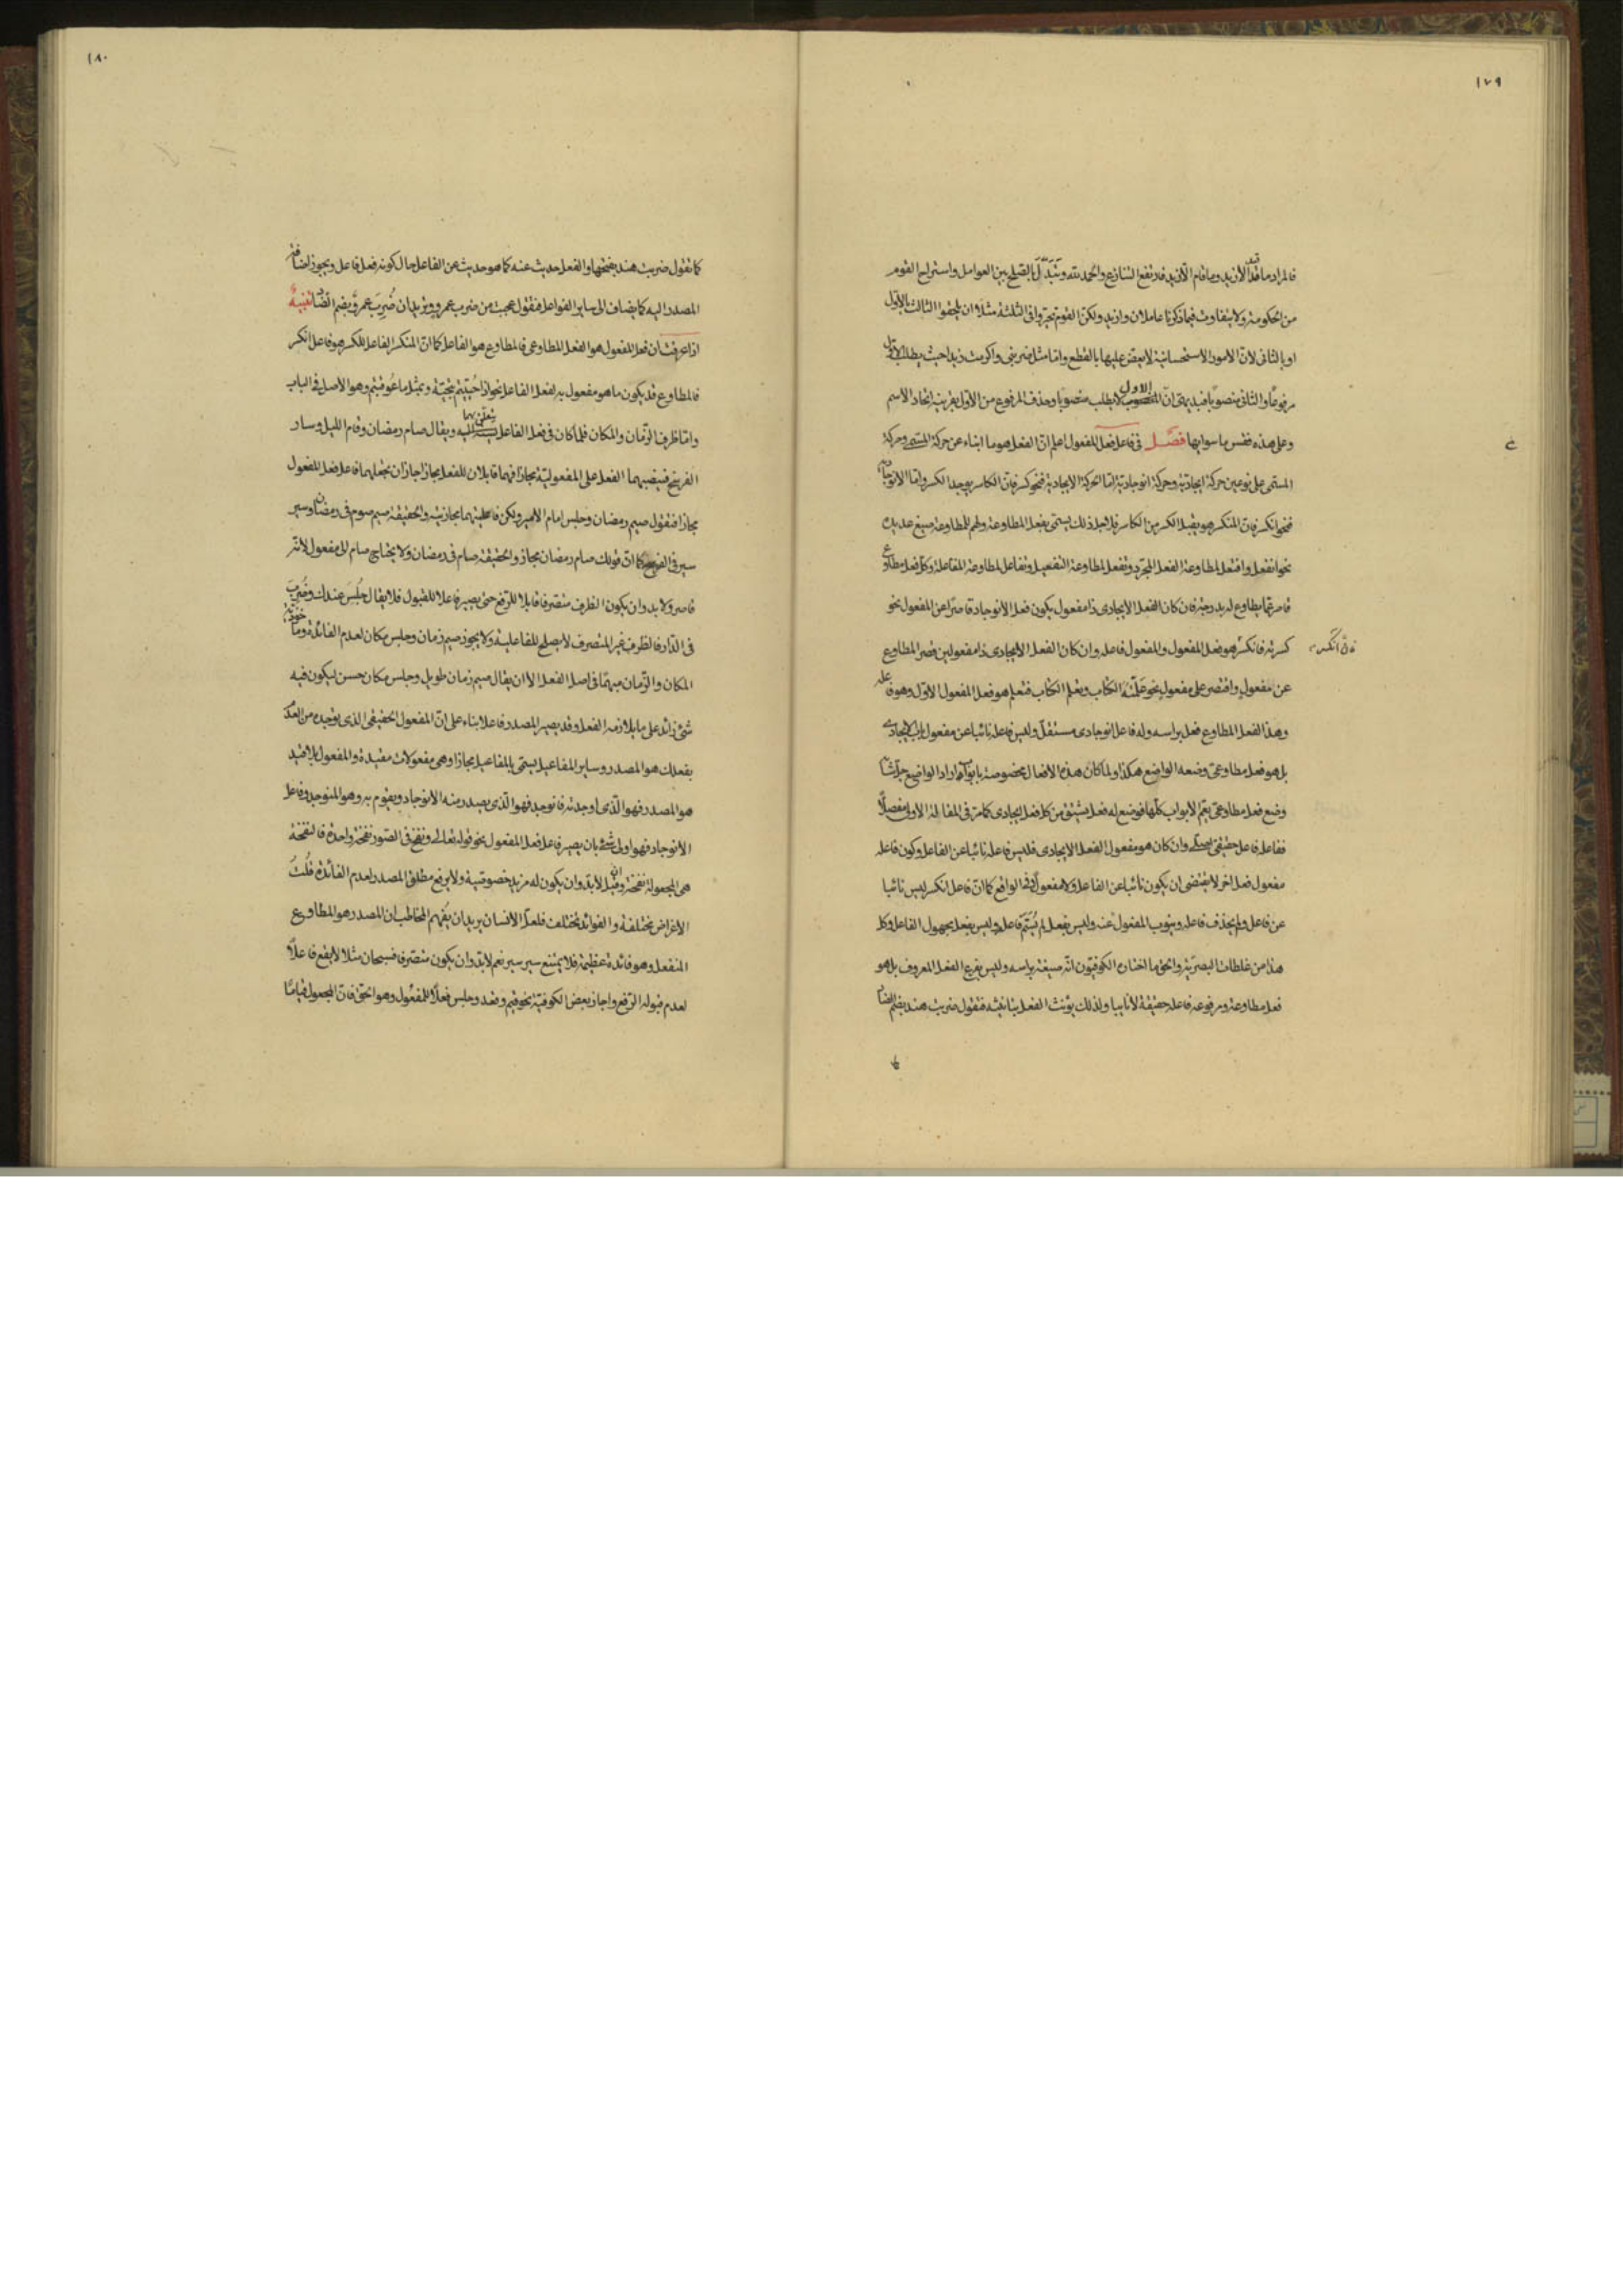 ١٧٩
فالمراد ما قعد الا زيد وما قام الا زيد فارتفع التنازع والحمد لله وتبدل بالصلح بين العوامل واستراح القوم
من الحكومة ولا يتفاوت فيما ذكرنا عاملان وازيد ولكن القوم تحيروا فى الثلثة مثلا ان يلحقوا الثالث بالاول
او بالثانى لان الامور الاستحسانية لا يعض عليها بالقطع واما مثل ضربنى واكرمت زيدا حيث يطلب الاول
مرفوعا والثانى منصوبا فبديهى ان الاول لا يطلب منصوبا وحذف المرفوع من الاول بقرينة اتحاد الاسم
وعلى هذه فقس ما سواها فصل فى فاعل فعل المفعول اعلم ان الفعل هو ما انباء عن حركة المسمى وحركة
المسمى على نوعين حركة ايجادية وحركة انوجادية اما الحركة الايجادية فنحو كسر فان الكاسر يوجد الكسر واما الانوجادية
فنحو انكسر فان المنكسر هو يقبل الكسر من الكاسر فلاجل ذلك يسمى بفعل المطاوعة ولهم للمطاوعة صيغ عديدة
نحو انفعل وافتعل لمطاوعة الفعل المجرد وتفعل لمطاوعة التفعيل وتفاعل لمطاوعة المفاعلة وكل فعل مطاوع
قاصر عما يطاوع له بدرجة فان كان الفعل الايجادى ذا مفعول يكون فعل الانوجاد قاصرا عن المفعول نحو
كسرته فانكسر هو فعل المفعول والمفعول فاعله وان كان الفعل الايجادى ذا مفعولين قصر المطاوع
فان انكسر
عن مفعول واقتصر على مفعول نحو علمته الكتاب وتعلم الكتاب فتعلم هو فعل المفعول الاول وهو فاعله
وهذا الفعل المطاوع فعل براسه وله فاعل انوجادى مستقل وليس فاعله نائبا عن مفعول الايجادى
بل هو فعل مطاوعى وضعه الواضع هكذا ولما كان هذه الافعال مخصوصة بابوابها اراد الواضع جل شانه
وضع فعل مطاوعى يعم الابواب كلها فوضع له فعل يشتق من كل فعل ايجادى كما مر فى المقالة الاولى مفصلا
ففاعله فاعل حقيقى وان كان هو مفعول الفعل الايجادى فليس فاعله نائبا عن الفاعل وكون فاعله
مفعول فعل اخر لا يقتضى ان يكون نائبا عن الفاعل ولا مفعولا فى الواقع كما ان فاعل انكسر ليس نائبا
عن فاعل ولم يحذف فاعله وينوب المفعول عنه وليس بفعل لم يسم فاعله وليس بفعل مجهول الفاعل وكل
هذا من غلطات البصريين والحق ما اختاره الكوفيون انه صيغة براسه وليس بفرع الفعل المعروف بل هو
فعل مطاوعة ومرفوعه فاعله حقيقة لا نايبا ولذلك يؤنث الفعل بتانيثه فتقول ضربت هند بضم الضاد
١٨٠
كما تقول ضربت هند بفتحها والفعل حديث عنه كما هو حديث عن الفاعل حال كونه فعل فاعل ويجوز اضافة
المصدر اليه كما يضاف الى ساير الفواعل فتقول عجبت من ضرب عمرو وتريد ان ضُرِبَ عمرو بضم الضاد تنبيه
اذا عرفت ان فعل المفعول هو الفعل المطاوعى فالمطاوع هو الفاعل كما ان المنكسر الفاعل للكسر هو فاعل انكسر
فالمطاوع قد يكون ما هو مفعول به لفعل الفاعل نحو اذا حييتم بتحية وبمثل ما عوقبتم وهو الاصل فى الباب
واما ظرفا الزمان والمكان فلما كان فى فعل الفاعل يتعلق بهما ويقال صام رمضان وقام الليل وسار
الفرسخ فينصبهما الفعل على المفعولية مجازا فهما قابلان للفعل مجازا جاز ان نجعلهما فاعل فعل المفعول
مجازا فتقول صيم رمضان وجلس امام الامير ولكن فاعليتهما مجازية والحقيقة صيم صوم فى رمضان وسير
سير فى الفرسخ كما ان قولك صام رمضان مجاز والحقيقة صام فى رمضان ولا يحتاج صام الى مفعول لانه
قاصر ولا بد وان يكون الظرف متصرفا قابلا للرفع حتى يصير فاعلا للقبول فلا يقال جُلِسَ عندك وضُرِبَ
فى الدار فالظرف غير المتصرف لا يصلح للفاعلية ولا يجوز صيم زمان وجلس مكان لعدم الفائدة
المكان والزمان مبهما فى اصل الفعل الا ان يقال صيم زمان طويل وجلس مكان حسن ليكون فيه
شئ زائد على ما يلازمه الفعل وقد يصير المصدر فاعلا بناء على ان المفعول الحقيقى الذى توجده من العدم
بفعلك هو المصدر وساير المفاعيل يسمى بالمفاعيل مجازا وهى مفعولات مقيدة والمفعول بلا قيد
هو المصدر فهو الذى اوجدته فانوجد فهو الذى يصدر منه الانوجاد ويقوم به وهو المنوجد وفاعل
الانوجاد فهو اولى شئ بان يصير فاعل فعل المفعول نحو قوله تعالى ونفخ فى الصور نفخة واحدة فالنفخة
هى المجعولة نفخة وقيل لا بد وان يكون له مزيد خصوصية ولا يرفع مطلق المصدر لعدم الفائدة قلت
الاغراض مختلفة والفوائد تختلف فلعل الانسان يريد ان يفهم المخاطب ان المصدر هو المطاوع
المنفعل وهو فائدة عظيمة فلا يمتنع سير سير نعم لا بد وان يكون متصرفا فسبحان مثلا لا يقع فاعلا
لعدم قبوله الرفع واجاز بعض الكوفية نحو قيم وقعد وجلس فعلا للمفعول وهو الحق فان المجعول قياما